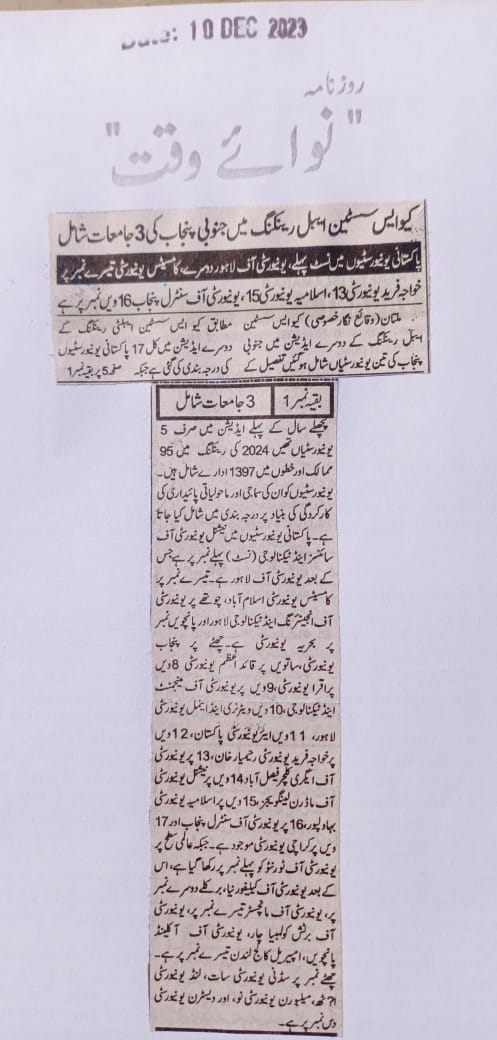 Date: 10 DEC 2023
روزنامہ
"نوائے وقت"
کیو ایس سسٹین ایبل رینکنگ میں جنوبی پنجاب کی 3 جامعات شامل
پاکستانی یونیورسٹیوں میں نسٹ پہلے، یونیورسٹی آف لاہور دوسرے، کامسیٹس یونیورسٹی تیسرے نمبر پر
خواجہ فرید یونیورسٹی 13، اسلامیہ یونیورسٹی 15، یونیورسٹی آف سنٹرل پنجاب 16 ویں نمبر پر ہے
ملتان (وقائع نگار خصوصی) کیو ایس سسٹین
ایبل رینکنگ کے دوسرے ایڈیشن میں جنوبی
پنجاب کی تین یونیورسٹیاں شامل ہوگئیں تفصیل کے
مطابق کیو ایس سسٹین ایبلٹی رینکنگ کے
دوسرے ایڈیشن میں کل 17 پاکستانی یونیورسٹیوں
کی درجہ بندی کی گئی ہے جبکہ صفحہ 5 پر بقیہ نمبر 1
بقیہ نمبر 1
3 جامعات شامل
پچھلے سال کے پہلے ایڈیشن میں صرف 5
یونیورسٹیاں تھیں 2024 کی رینکنگ میں 95
ممالک اور خطوں میں 1397 ادارے شامل ہیں۔
یونیورسٹیوں کو ان کی سماجی اور ماحولیاتی پائیداری کی
کارکردگی کی بنیاد پر درجہ بندی میں شامل کیا جاتا
ہے۔ پاکستانی یونیورسٹیوں میں نیشنل یونیورسٹی آف
سائنسز اینڈ ٹیکنالوجی (نسٹ) پہلے نمبر پر ہے جس
کے بعد یونیورسٹی آف لاہور ہے۔ تیسرے نمبر پر
کامسیٹس یونیورسٹی اسلام آباد، چوتھے پر یونیورسٹی
آف انجینئرنگ اینڈ ٹیکنالوجی لاہور اور پانچویں نمبر
پر بحریہ یونیورسٹی ہے۔ چھٹے پر پنجاب
یونیورسٹی، ساتویں پر قائد اعظم یونیورسٹی 8 ویں
پر اقرا یونیورسٹی، 9 ویں پر یونیورسٹی آف مینجمنٹ
اینڈ ٹیکنالوجی، 10 ویں ویٹرنری اینڈ اینمل یونیورسٹی
لاہور، 11 ویں ایئر یونیورسٹی پاکستان، 12 ویں
پر خواجہ فرید یونیورسٹی رحیم یار خان، 13 پر یونیورسٹی
آف ایگری کلچر فیصل آباد 14 ویں پر نیشنل یونیورسٹی
آف ماڈرن لینگویجز، 15 ویں پر اسلامیہ یونیورسٹی
بہاولپور، 16 پر یونیورسٹی آف سنٹرل پنجاب اور 17
ویں پر کراچی یونیورسٹی موجود ہے۔ جبکہ عالمی سطح پر
یونیورسٹی آف ٹورنٹو کو پہلے نمبر پر رکھا گیا ہے، اس
کے بعد یونیورسٹی آف کیلیفورنیا، برکلے دوسرے نمبر
پر، یونیورسٹی آف مانچسٹر تیسرے نمبر پر، یونیورسٹی
آف برٹش کولمبیا چار، یونیورسٹی آف آکلینڈ
پانچویں، امپیریل کالج لندن تیسرے نمبر پر ہے۔
چھٹے نمبر پر سڈنی یونیورسٹی سات، لنڈ یونیورسٹی
آٹھ، میلبورن یونیورسٹی نو، اور ویسٹرن یونیورسٹی
دس نمبر پر ہے۔